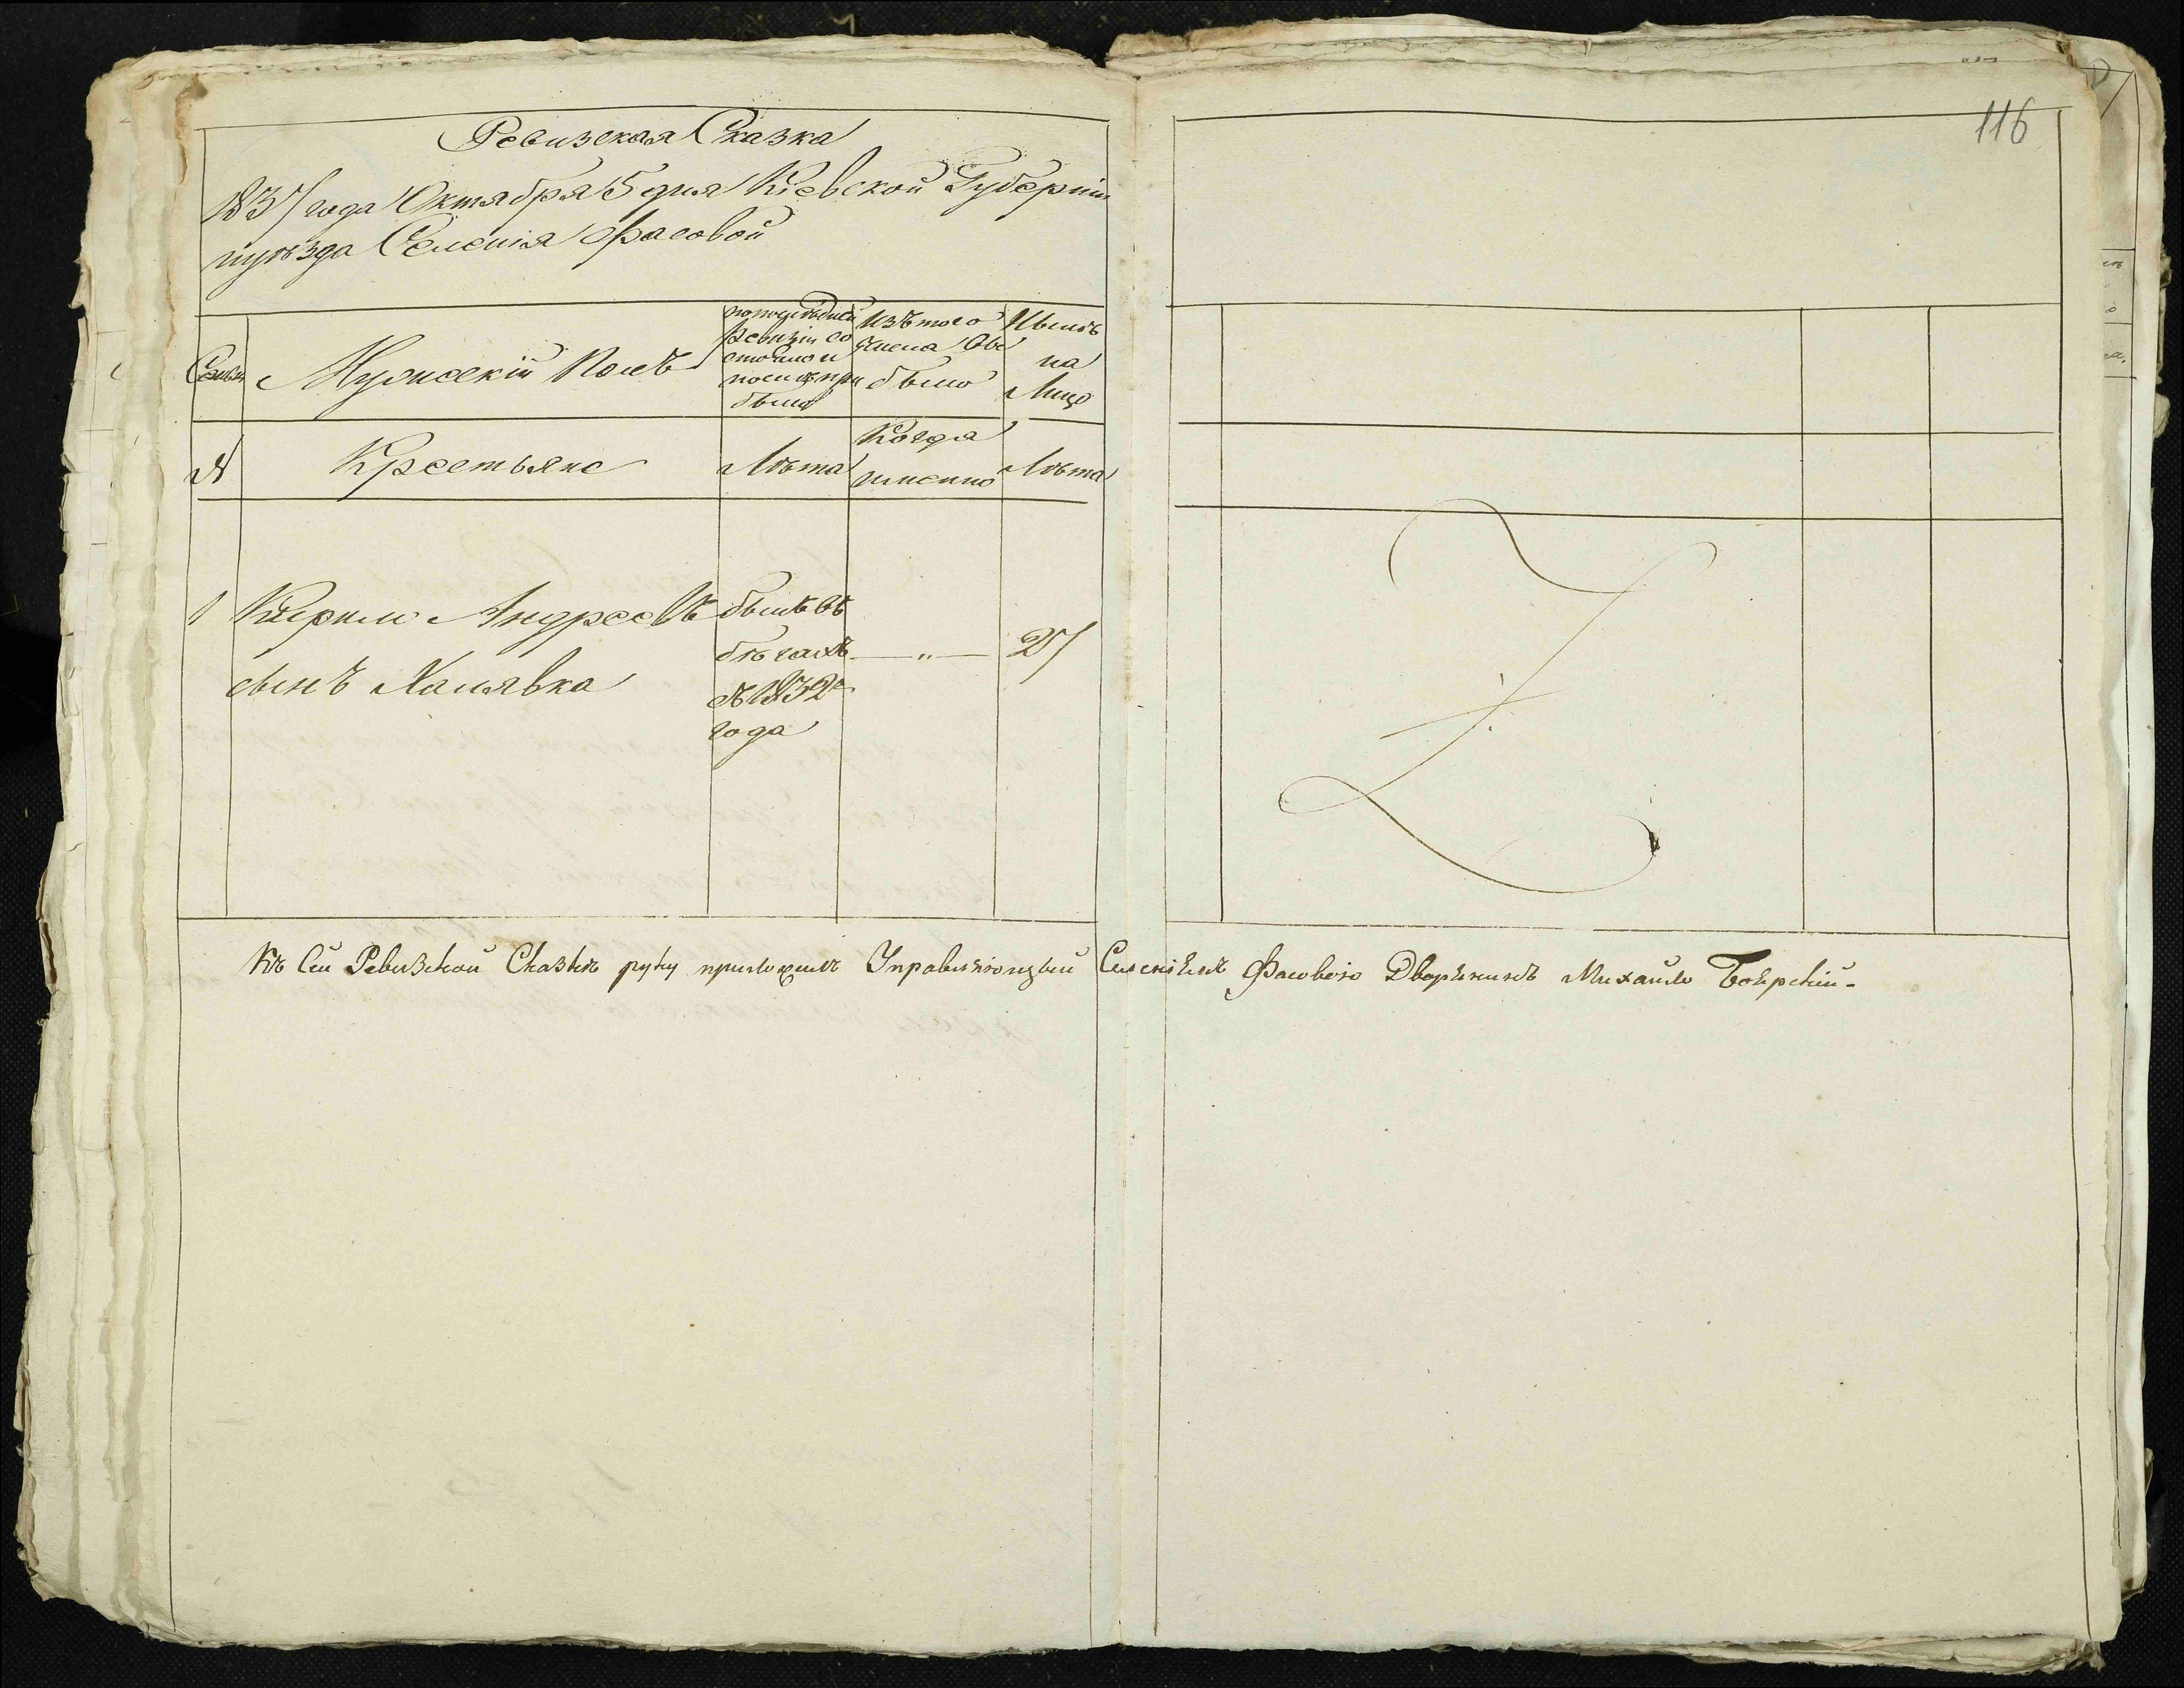 116
Ревизская Сказка
1837 года Октября 5 дня Кіевской Губерніи
иуѣзда Селенія Фасовой
Семьи
Мужескій Полъ
попослѣдней ревизіи состояло и послѣ прибыло
Изъ того числа выбыло
Нынѣ на Лицо
№
Крестьяне
Лѣта
Когда именно
Лѣта
1 Кирило Андреевъ былъ въ
бѣгахъ — " — 27
сынъ Халявка съ 1832
года
Къ сей Ревизской Сказкѣ руку приложилъ Управляющій Селеніемъ Фасовою Дворянинъ Михайло Боярскій.